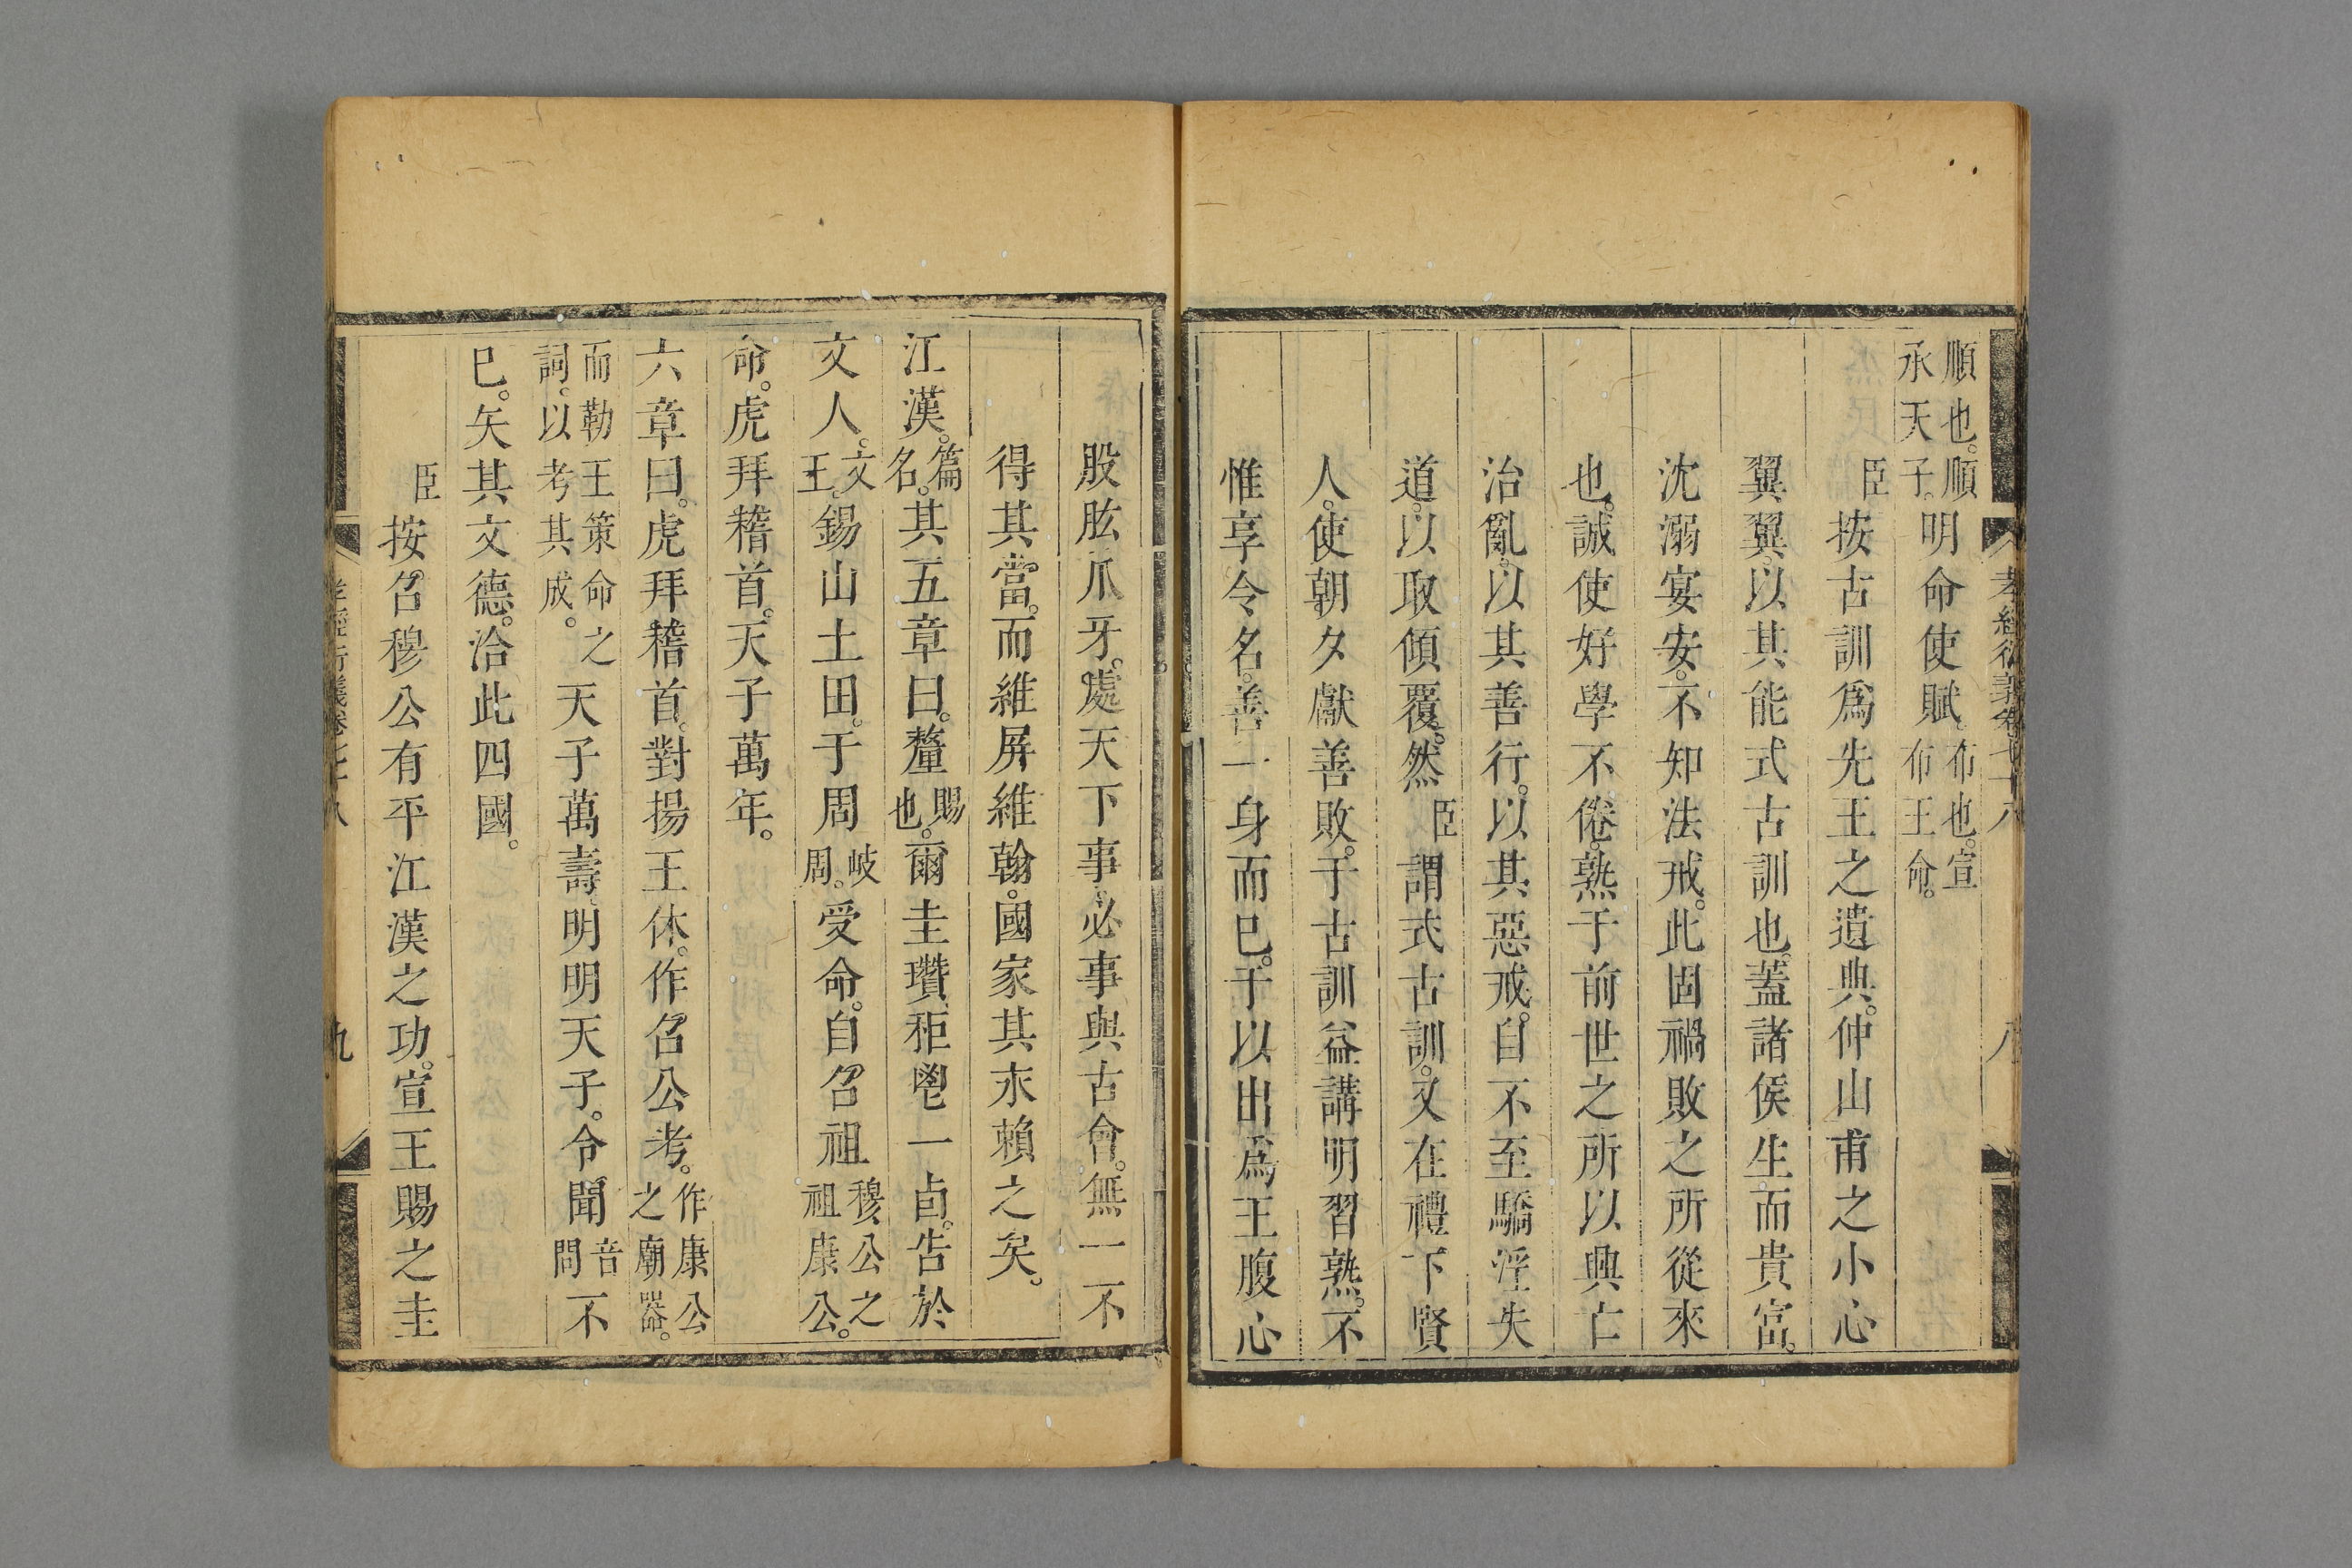 孝經衍義卷七十八 八
順也。順承天子。明命使賦。布也。宣布王命。
臣按古訓爲先王之遺典。仲山甫之小心
翼翼。以其能式古訓也。蓋諸侯生而貴富。
沈溺宴安。不知法戒。此固禍敗之所從來
也。誠使好學不倦。熟于前世之所以興亡
治亂。以其善行。以其惡戒。自不至驕淫失
道。以取傾覆。然臣謂式古訓。又在禮下賢
人。使朝夕獻善敗。于古訓益講明習熟。不
惟享令名。善一身而已。于以出爲王腹心
股肱爪牙。處天下事。必事與古會。無一不
得其當。而維屏維翰。國家其永賴之矣。
江漢。篇名。其五章曰。釐賜也。爾圭瓚。秬鬯一卣。告於
文人。文王。錫山土田。于周岐周。受命。自召祖穆公之祖康公。
命。虎拜稽首。天子萬年。
六章曰。虎拜稽首。對揚王休。作召公考。作康公之廟器。
而勒王策命之詞。以考其成。天子萬壽。明明天子。令聞音問不
已。矢其文德。洽此四國。
臣按召穆公有平江漢之功。宣王賜之圭
孝經衍義卷七十八 九